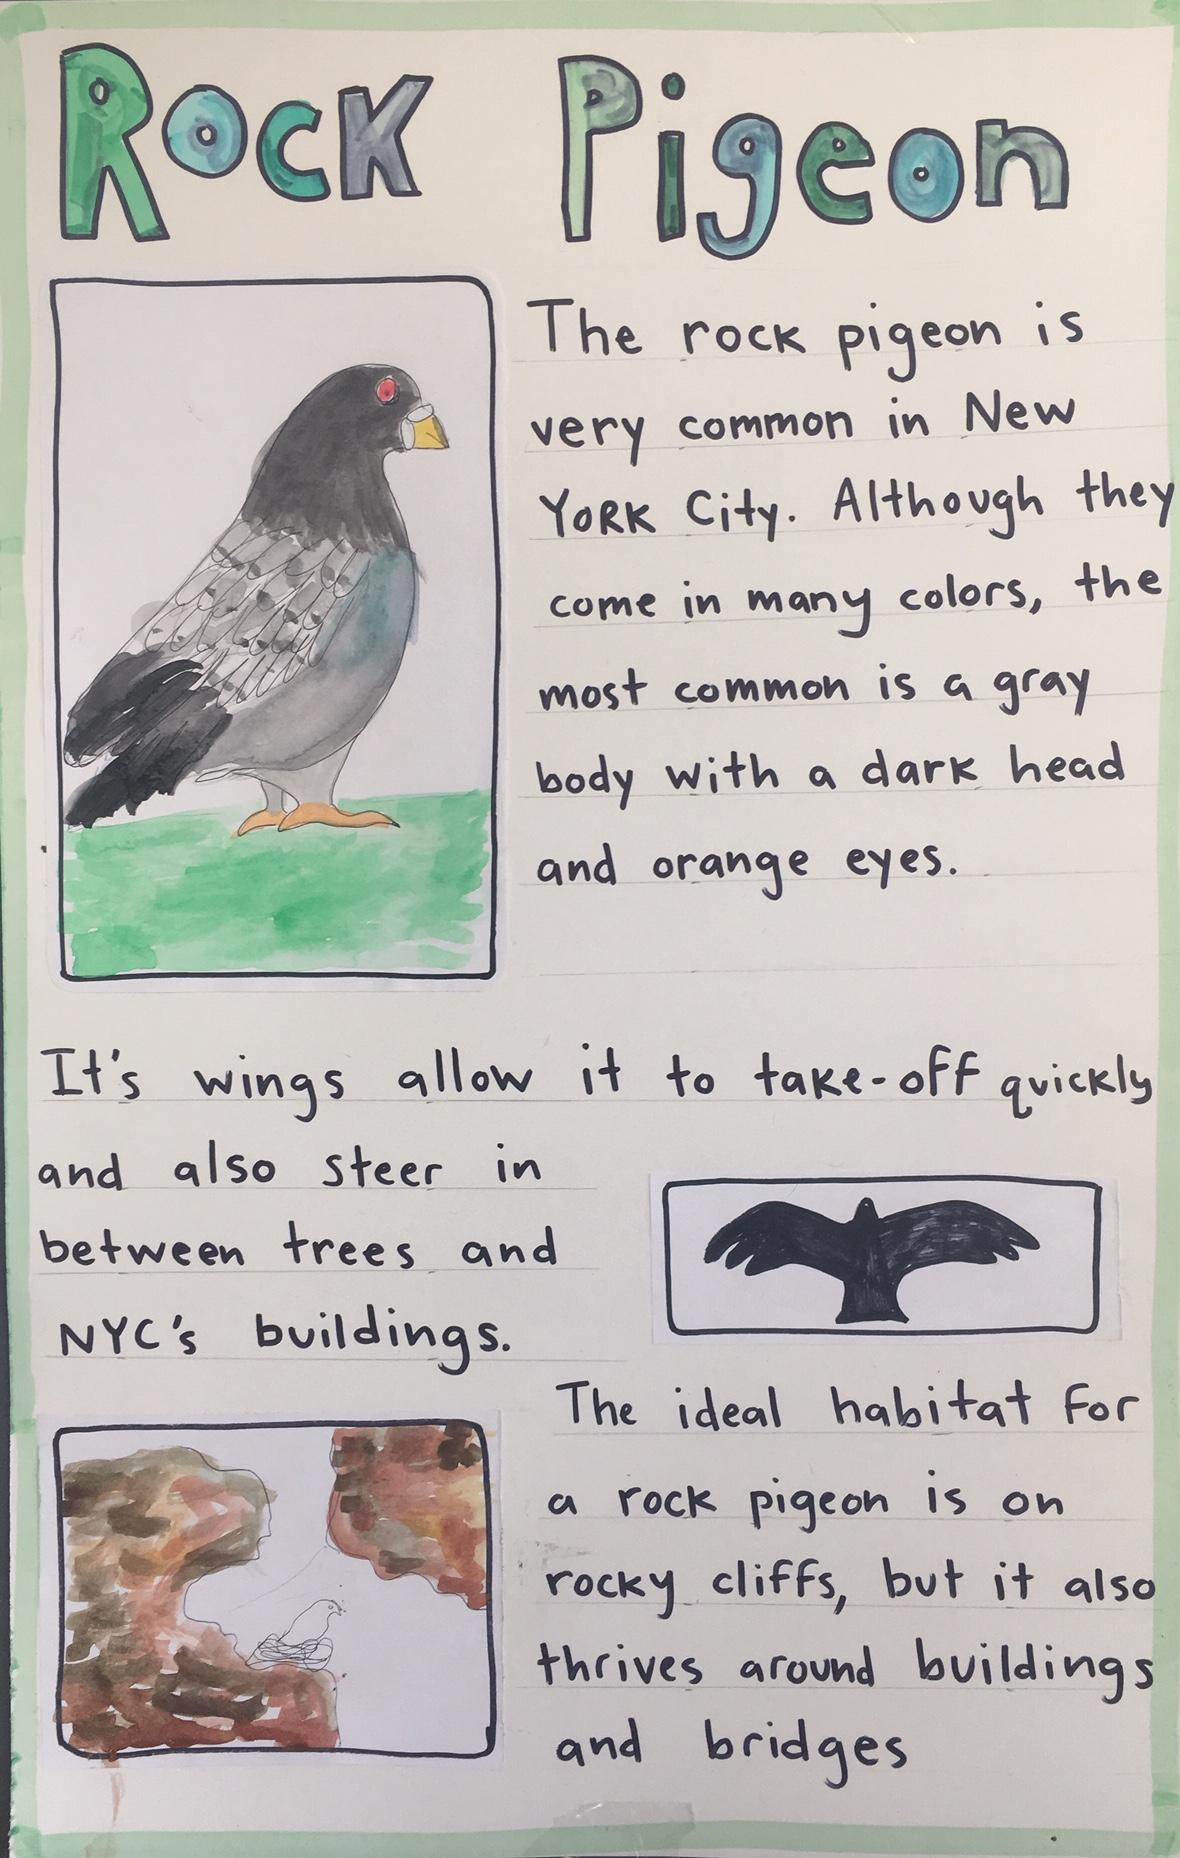 Rock Pigeon
The rock pigeon is
very common in New
York City. Although they
come in many colors, the
most common is a gray
body with a dark head
and orange eyes.
It's wings allow it to take-off quickly
and also steer in
between trees and
NYC's buildings.
The ideal habitat for
a rock pigeon is on
rocky cliffs, but it also
thrives around buildings
and bridges